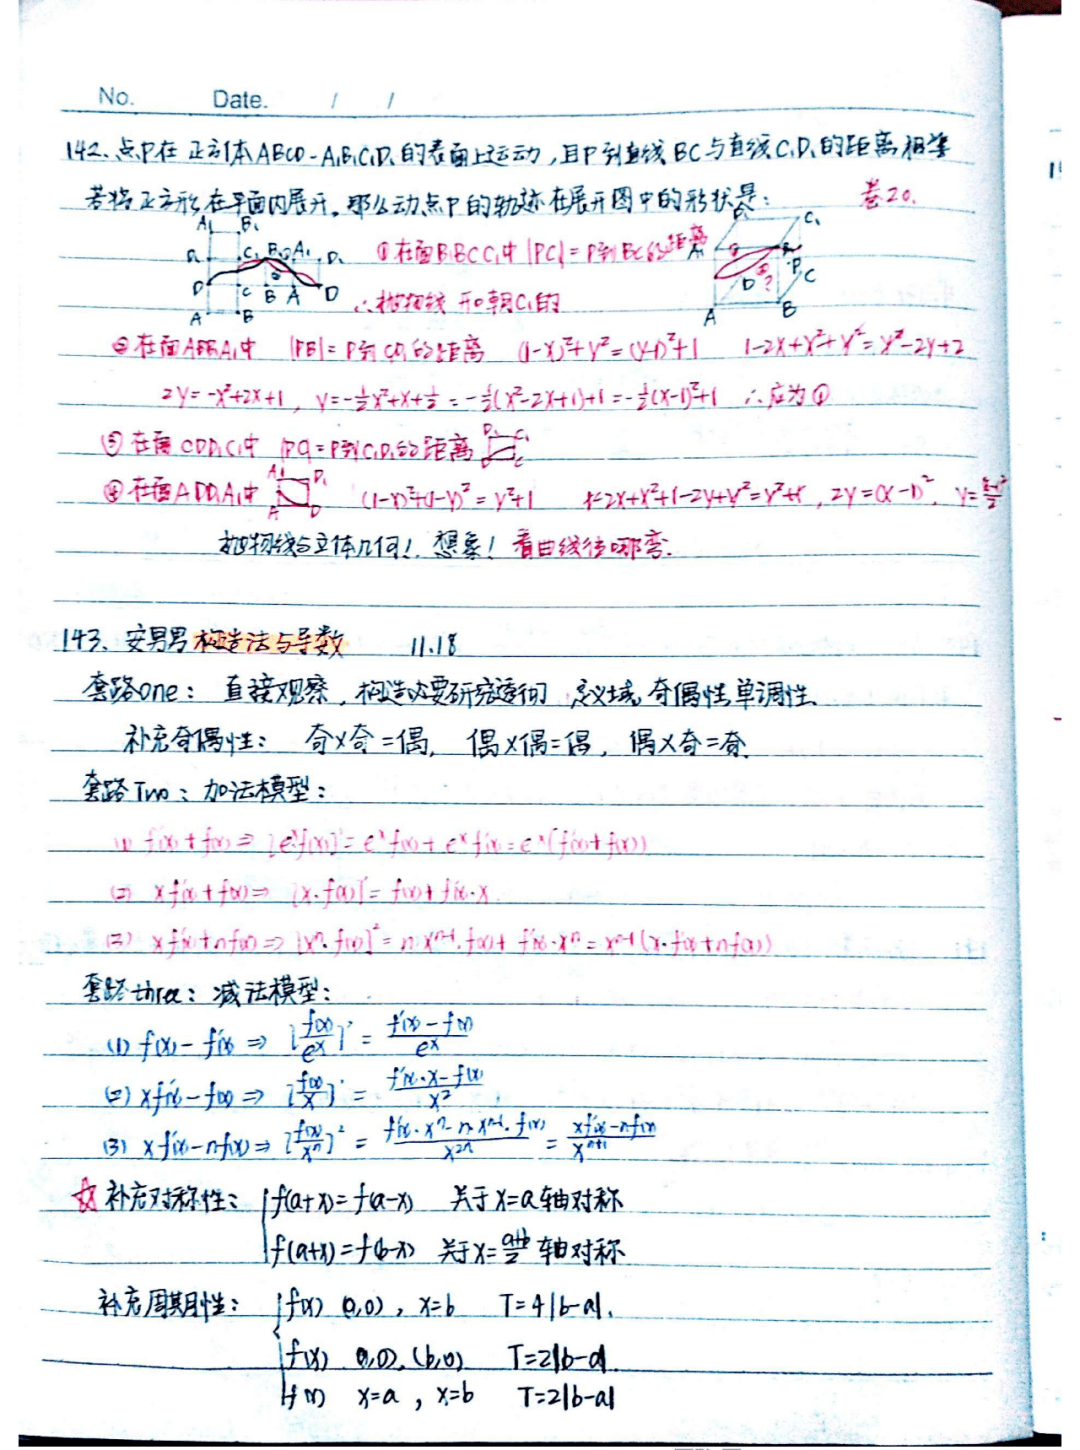 No. Date. / /
142、点P在正方体ABCD-A₁B₁C₁D₁的表面上运动,且P到直线BC与直线C₁D₁的距离相等
若将正方形在平面内展开,那么动点P的轨迹在展开图中的形状是: 卷20.
A₁ B₁ C₁ B₁ A₁ D₁ D C B A D A B
①在面B₁BCC₁中 |PC₁|=P到BC的距离
A₁ C₁ P C D A B
∴抛物线 开口朝C₁的
②在面ABB₁A₁中 |PB|=P到C₁D₁的距离 (1-x)²+y²=(y-1)²+1 1-2x+x²+y²=y²-2y+2
2y=-x²+2x+1, y=-½x²+x+½=-½(x²-2x+1)+1=-½(x-1)²+1 ∴应为①
③在面CDD₁C₁中 |PC|=P到C₁D₁的距离 D₁ C₁ C
④在面ADD₁A₁中 A₁ D₁ A D (1-x)²+(1-y)²=y²+1 1-2x+x²+1-2y+y²=y²+1, 2y=(x-1)². y=(x-1)²/2
抛物线与立体几何!想象!看曲线往哪弯.
143、安男男构造法与导数 11.18
套路one: 直接观察,构造必要研究透彻 定义域,奇偶性,单调性.
补充奇偶性: 奇×奇=偶, 偶×偶=偶, 偶×奇=奇.
套路Two: 加法模型:
(1) f'(x)+f(x)⇒ [eˣf(x)]'=eˣf(x)+eˣf'(x)=eˣ(f'(x)+f(x))
(2) xf'(x)+f(x)⇒ [x·f(x)]'=f(x)+f'(x)·x
(3) xf'(x)+nf(x)⇒[xⁿ·f(x)]'=nxⁿ⁻¹·f(x)+f'(x)·xⁿ=xⁿ⁻¹(x·f'(x)+nf(x))
套路three: 减法模型:
(1) f(x)-f'(x) ⇒ [f(x)/eˣ]' = (f'(x)-f(x))/eˣ
(2) xf'(x)-f(x) ⇒ [f(x)/x]' = (f'(x)·x-f(x))/x²
(3) xf'(x)-nf(x)⇒ [f(x)/xⁿ]' = (f'(x)·xⁿ-n·xⁿ⁻¹·f(x))/x²ⁿ = (xf'(x)-nf(x))/xⁿ⁺¹
☆补充对称性: {f(a+x)=f(a-x) 关于x=a轴对称
f(a+x)=f(b-x) 关于x=(a+b)/2 轴对称
补充周期性: {f(x) (a,0), x=b T=4|b-a|.
f(x) (a,0),(b,0) T=2|b-a|.
f(x) x=a, x=b T=2|b-a|